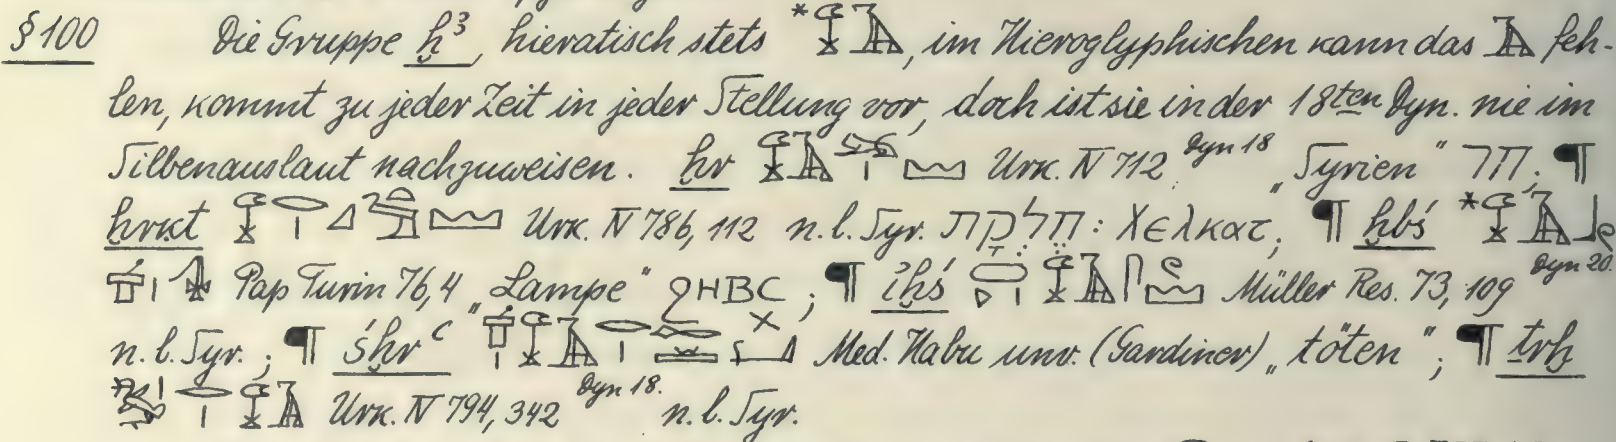 § 100 Die Gruppe ḫ³, hieratisch stets * 𓆼𓄿, im Hieroglyphischen kann das 𓄿 feh-
len, kommt zu jeder Zeit in jeder Stellung vor, doch ist sie in der 18ten Dyn. nie im
Silbenauslaut nachzuweisen. ḫr Urk. IV 712 Dyn 18 „Syrien“ חר; ¶
ḫrkt Urk. IV 786, 112 n. l. Syr. חֶלְקָת: χελκατ; ¶ ḫbś *
Pap Turin 76,4 „Lampe“ ϩΗΒС; ¶ iḫś Müller Res. 73, 109 Dyn 20.
n. l. Syr.; ¶ śḫrᶜ Med. Habu unv. (Gardiner) „töten“; ¶ trḫ
* Urk. IV 794, 342 Dyn 18. n. l. Syr.